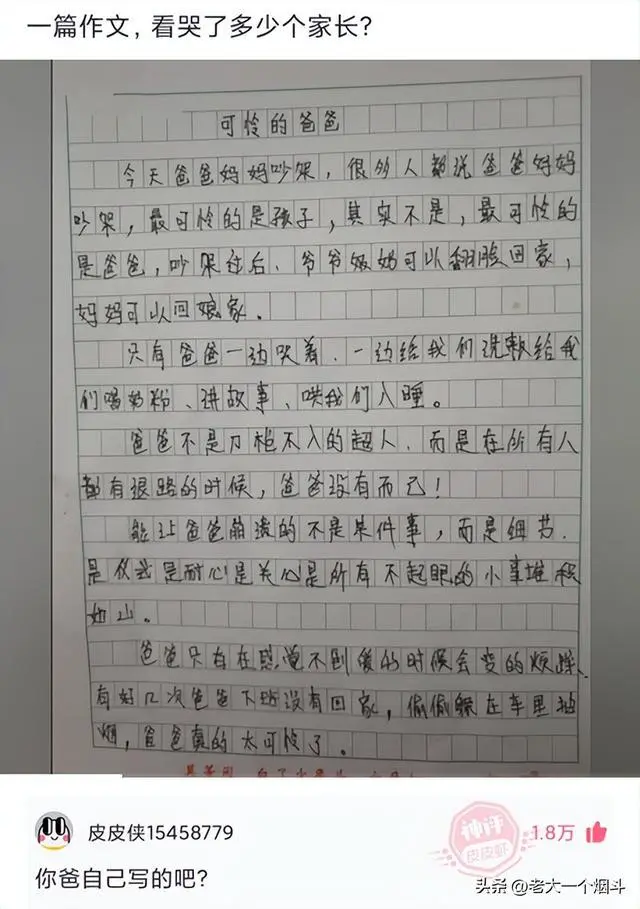 一篇作文，看哭了多少个家长？
可怜的爸爸
今天爸爸妈妈吵架，很多人都说爸爸妈妈
吵架，最可怜的是孩子，其实不是，最可怜的
是爸爸，吵架过后、爷爷奶奶可以翻脸回家，
妈妈可以回娘家。
只有爸爸一边哭着、一边给我们洗漱给我
们喝奶粉、讲故事、哄我们入睡。
爸爸不是刀枪不入的超人、而是在所有人
都有退路的时候，爸爸没有而已！
能让爸爸崩溃的不是某件事，而是细节、
是仪式是耐心是关心是所有不起眼的小事堆积
如山。
爸爸只有在感觉不到爱的时候会变的烦躁、
有好几次爸爸下班没有回家，偷偷躲在车里抽
烟，爸爸真的太可怜了。
皮皮侠15458779
神评
皮皮虾
1.8万
你爸自己写的吧？
头条@老大一个烟斗